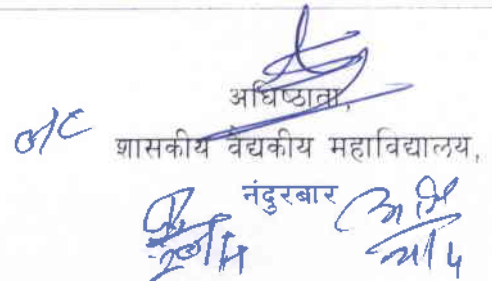 अधिष्ठाता,
o/c शासकीय वैद्यकीय महाविद्यालय,
नंदुरबार